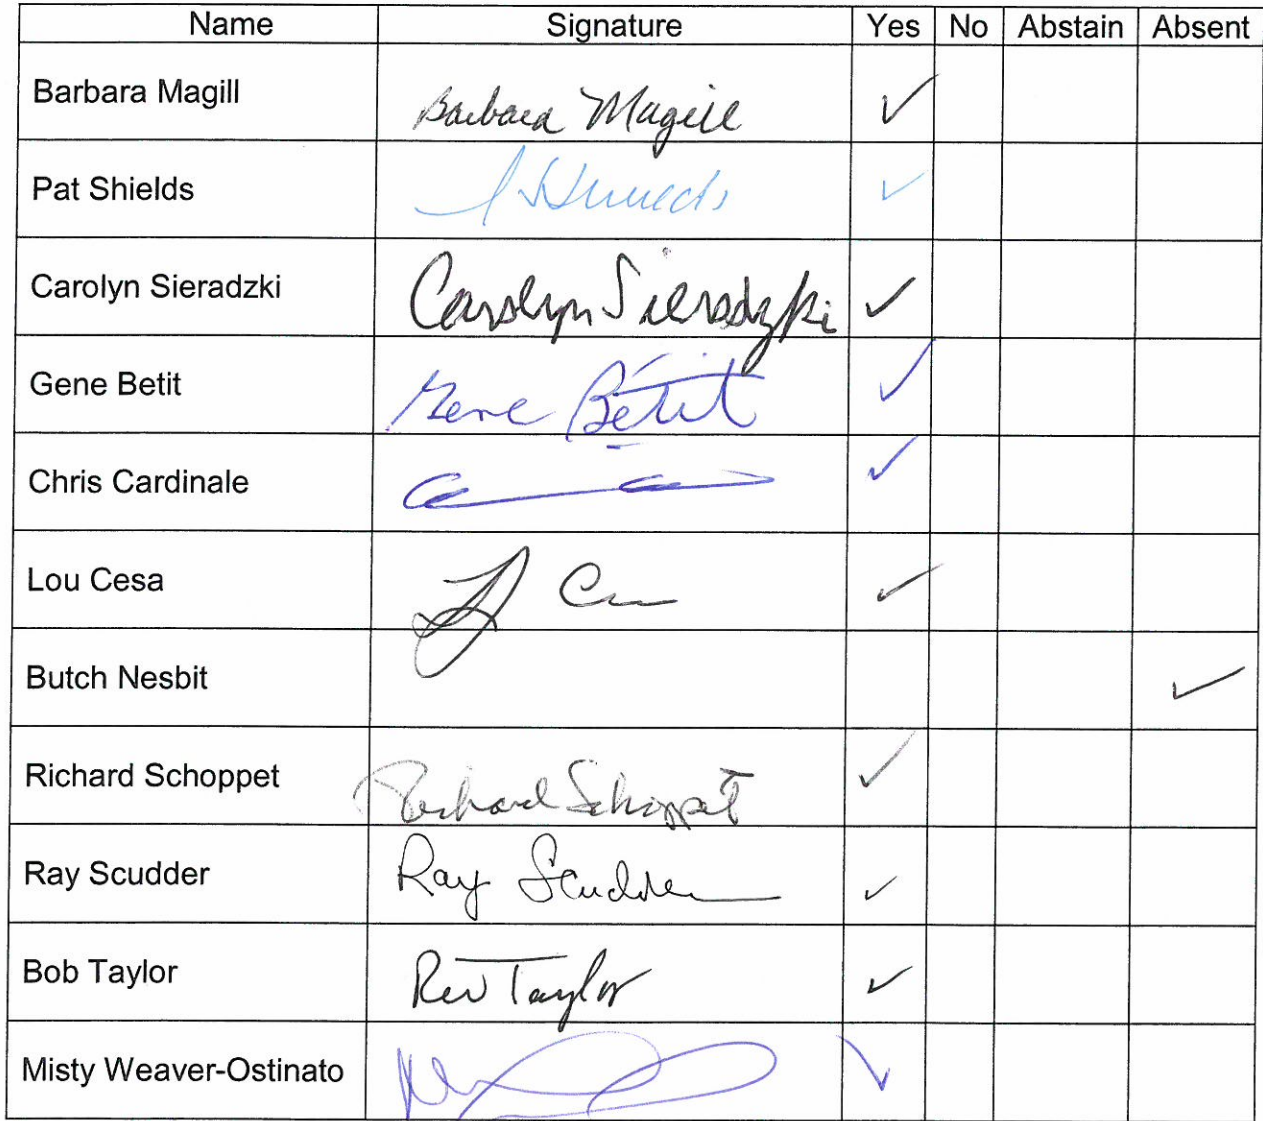 Name Signature Yes No Abstain Absent
Barbara Magill Barbara Magill ✓
Pat Shields ✓
Carolyn Sieradzki Carolyn Sieradzki ✓
Gene Betit Gene Bétit ✓
Chris Cardinale ✓
Lou Cesa ✓
Butch Nesbit ✓
Richard Schoppet Richard Schoppet ✓
Ray Scudder Ray Scudder ✓
Bob Taylor Rev Taylor ✓
Misty Weaver-Ostinato ✓